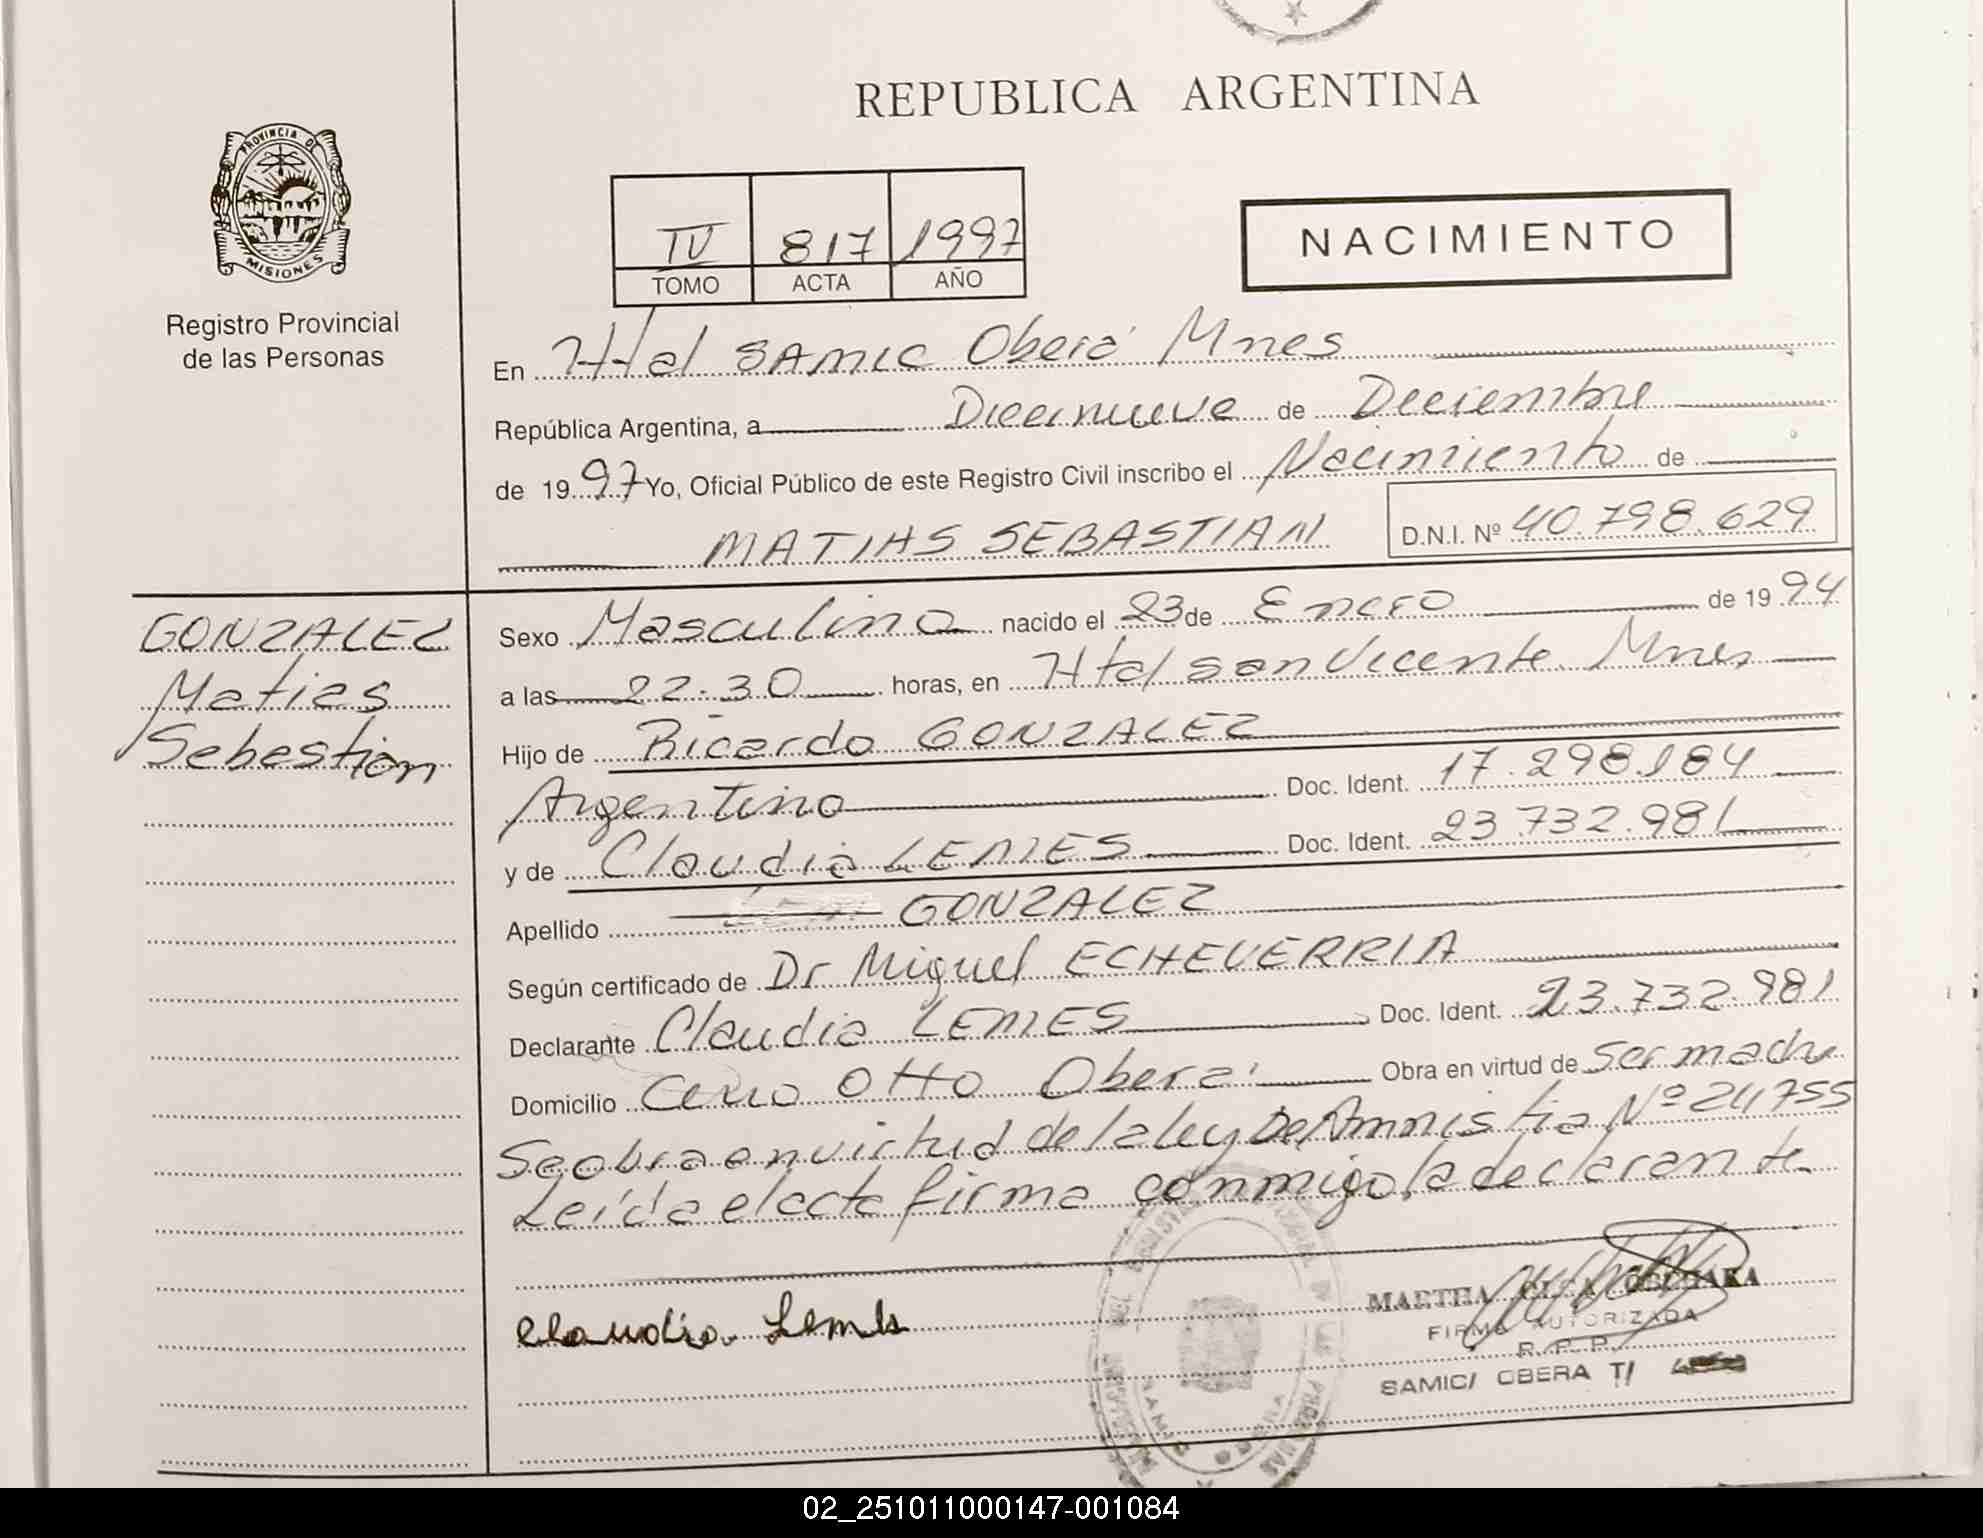 REPUBLICA ARGENTINA
PROVINCIA DE
MISIONES
Registro Provincial
de las Personas
IV 817 1997
TOMO ACTA AÑO
NACIMIENTO
En Htal SAMIC Oberá Mnes
República Argentina, a Diecinueve de Diciembre
de 1997 Yo, Oficial Público de este Registro Civil inscribo el Nacimiento de
MATIAS SEBASTIAN D.N.I. Nº 40.798.629
GONZALEZ
Matias
Sebastian
Sexo Masculino nacido el 23 de Enero de 1994
a las 22.30 horas, en Htal San Vicente Mnes
Hijo de Ricardo GONZALEZ
Argentino Doc. Ident. 17.298.184
y de Claudia LEMES Doc. Ident. 23.732.981
Apellido GONZALEZ
Según certificado de Dr Miguel ECHEVERRIA
Declarante Claudia LEMES Doc. Ident. 23.732.981
Domicilio Cerro Otto Oberá Obra en virtud de Ser madre
Se obra en virtud de la ley De Amnistia Nº 24755
Leída el acta firma conmigo la declarante
Claudia Lemes
MARTHA OLGA
FIRMA AUTORIZADA
R. P. P.
SAMIC/ OBERA T/
SAMIC OBERA
02_251011000147-001084